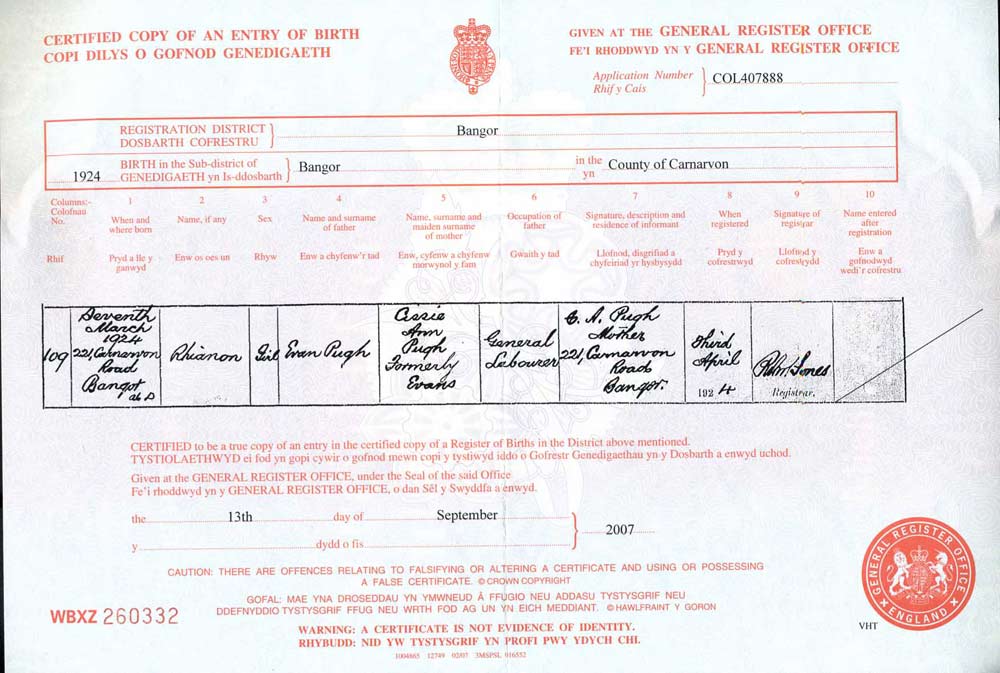 CERTIFIED COPY OF AN ENTRY OF BIRTH
COPI DILYS O GOFNOD GENEDIGAETH
GIVEN AT THE GENERAL REGISTER OFFICE
FE'I RHODDWYD YN Y GENERAL REGISTER OFFICE
Application Number
Rhif y Cais
COL407888
REGISTRATION DISTRICT
DOSBARTH COFRESTRU
Bangor
1924
BIRTH in the Sub-district of
GENEDIGAETH yn Is-ddosbarth
Bangor
in the
yn
County of Carnarvon
Columns:-
Colofnau
No.
Rhif
1
When and
where born
Pryd a lle y
ganwyd
2
Name, if any
Enw os oes un
3
Sex
Rhyw
4
Name and surname
of father
Enw a chyfenw'r tad
5
Name, surname and
maiden surname
of mother
Enw, cyfenw a chyfenw
morwynol y fam
6
Occupation of
father
Gwaith y tad
7
Signature, description and
residence of informant
Llofnod, disgrifiad a
chyfeiriad yr hysbysydd
8
When
registered
Pryd y
cofrestrwyd
9
Signature of
registrar
Llofnod y
cofrestrydd
10
Name entered
after
registration
Enw a
gofnodwyd
wedi'r cofrestru
109
Seventh
March
1924
221, Carnarvon
Road
Bangor
Rhianon
Girl
Evan Pugh
Cissie
Ann
Pugh
Formerly
Evans
General
Labourer
C. A. Pugh
Mother
221, Carnarvon
Road
Bangor.
Third
April
1924
Jones
Registrar.
CERTIFIED to be a true copy of an entry in the certified copy of a Register of Births in the District above mentioned.
TYSTIOLAETHWYD ei fod yn gopi cywir o gofnod mewn copi y tystiwyd iddo o Gofrestr Genedigaethau yn y Dosbarth a enwyd uchod.
Given at the GENERAL REGISTER OFFICE, under the Seal of the said Office
Fe'i rhoddwyd yn y GENERAL REGISTER OFFICE, o dan Sêl y Swyddfa a enwyd.
the 13th day of September
y dydd o fis
2007
CAUTION: THERE ARE OFFENCES RELATING TO FALSIFYING OR ALTERING A CERTIFICATE AND USING OR POSSESSING
A FALSE CERTIFICATE. © CROWN COPYRIGHT
GOFAL: MAE YNA DROSEDDAU YN YMWNEUD Â FFUGIO NEU ADDASU TYSTYSGRIF NEU
DDEFNYDDIO TYSTYSGRIF FFUG NEU WRTH FOD AG UN YN EICH MEDDIANT. © HAWLFRAINT Y GORON
WARNING: A CERTIFICATE IS NOT EVIDENCE OF IDENTITY.
RHYBUDD: NID YW TYSTYSGRIF YN PROFI PWY YDYCH CHI.
1004865 12749 02/07 3MSPSL 016552
WBXZ 260332
VHT
GENERAL REGISTER OFFICE
ENGLAND